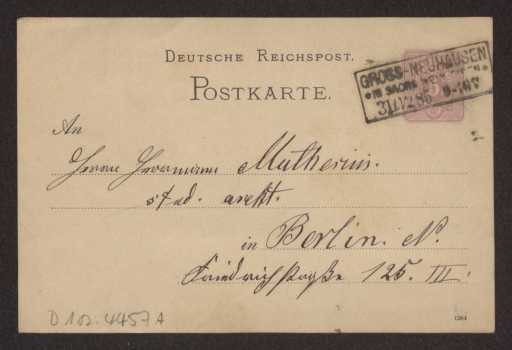 DEUTSCHE REICHSPOST.
POSTKARTE.
GROSS-NEUHAUSEN
31/12 86 9-10V
An
Herrn Hermann Muthesius.
stud. archt.
in Berlin. N.
Friedrichstraße 125. III.
D 102-4457A